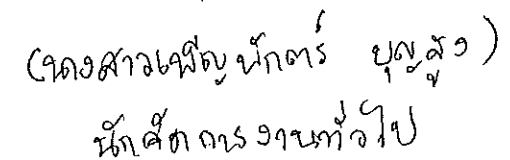 (นางสาวเพ็ญพักตร์ บุญสูง)
นักจัดการงานทั่วไป